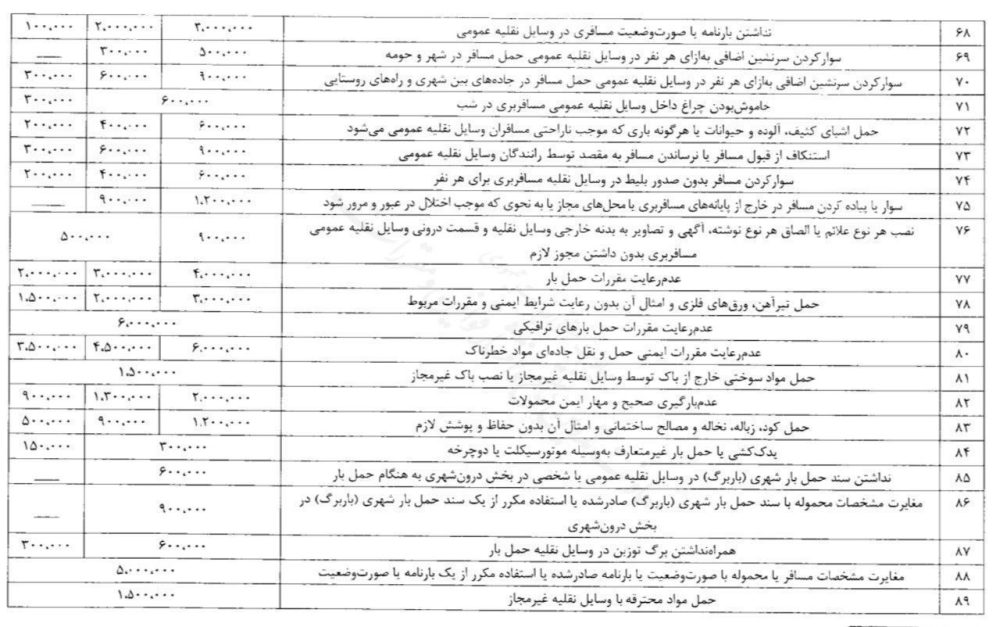 ۶۸ نداشتن بارنامه یا صورت‌وضعیت مسافری در وسایل نقلیه عمومی ۳،۰۰۰،۰۰۰ ۲،۰۰۰،۰۰۰ ۱۰۰،۰۰۰
۶۹ سوارکردن سرنشین اضافی به‌ازای هر نفر در وسایل نقلیه عمومی حمل مسافر در شهر و حومه ۵۰۰،۰۰۰ ۳۰۰،۰۰۰ ــــ
۷۰ سوارکردن سرنشین اضافی به‌ازای هر نفر در وسایل نقلیه عمومی حمل مسافر در جاده‌های بین شهری و راه‌های روستایی ۹۰۰،۰۰۰ ۶۰۰،۰۰۰ ۳۰۰،۰۰۰
۷۱ خاموش‌بودن چراغ داخل وسایل نقلیه عمومی مسافربری در شب ۶۰۰،۰۰۰ ۳۰۰،۰۰۰
۷۲ حمل اشیای کثیف، آلوده و حیوانات یا هرگونه باری که موجب ناراحتی مسافران وسایل نقلیه عمومی می‌شود ۶۰۰،۰۰۰ ۴۰۰،۰۰۰ ۲۰۰،۰۰۰
۷۳ استنکاف از قبول مسافر یا نرساندن مسافر به مقصد توسط رانندگان وسایل نقلیه عمومی ۹۰۰،۰۰۰ ۶۰۰،۰۰۰ ۳۰۰،۰۰۰
۷۴ سوارکردن مسافر بدون صدور بلیط در وسایل نقلیه مسافربری برای هر نفر ۶۰۰،۰۰۰ ۴۰۰،۰۰۰ ۲۰۰،۰۰۰
۷۵ سوار یا پیاده کردن مسافر در خارج از پایانه‌های مسافربری یا محل‌های مجاز یا به نحوی که موجب اختلال در عبور و مرور شود ۱،۲۰۰،۰۰۰ ۹۰۰،۰۰۰ ــــ
۷۶ نصب هر نوع علائم یا الصاق هر نوع نوشته، آگهی و تصاویر به بدنه خارجی وسایل نقلیه و قسمت درونی وسایل نقلیه عمومی ۹۰۰،۰۰۰ ۵۰۰،۰۰۰
مسافربری بدون داشتن مجوز لازم
۷۷ عدم‌رعایت مقررات حمل بار ۴،۰۰۰،۰۰۰ ۳،۰۰۰،۰۰۰ ۲،۰۰۰،۰۰۰
۷۸ حمل تیرآهن، ورق‌های فلزی و امثال آن بدون رعایت شرایط ایمنی و مقررات مربوط ۳،۰۰۰،۰۰۰ ۲،۰۰۰،۰۰۰ ۱،۵۰۰،۰۰۰
۷۹ عدم‌رعایت مقررات حمل بارهای ترافیکی ۶،۰۰۰،۰۰۰
۸۰ عدم‌رعایت مقررات ایمنی حمل و نقل جاده‌ای مواد خطرناک ۶،۰۰۰،۰۰۰ ۴،۵۰۰،۰۰۰ ۳،۵۰۰،۰۰۰
۸۱ حمل مواد سوختی خارج از باک توسط وسایل نقلیه غیرمجاز یا نصب باک غیرمجاز ۱،۵۰۰،۰۰۰
۸۲ عدم‌بارگیری صحیح و مهار ایمن محمولات ۲،۰۰۰،۰۰۰ ۱،۳۰۰،۰۰۰ ۹۰۰،۰۰۰
۸۳ حمل کود، زباله، نخاله و مصالح ساختمانی و امثال آن بدون حفاظ و پوشش لازم ۱،۲۰۰،۰۰۰ ۹۰۰،۰۰۰ ۵۰۰،۰۰۰
۸۴ یدک‌کشی یا حمل بار غیرمتعارف به‌وسیله موتورسیکلت یا دوچرخه ۳۰۰،۰۰۰ ۱۵۰،۰۰۰
۸۵ نداشتن سند حمل بار شهری (باربرگ) در وسایل نقلیه عمومی یا شخصی در بخش درون‌شهری به هنگام حمل بار ۶۰۰،۰۰۰ ــــ
۸۶ مغایرت مشخصات محموله با سند حمل بار شهری (باربرگ) صادرشده یا استفاده مکرر از یک سند حمل بار شهری (باربرگ) در ۹۰۰،۰۰۰ ــــ
بخش درون‌شهری
۸۷ همراه‌نداشتن برگ توزین در وسایل نقلیه حمل بار ۶۰۰،۰۰۰ ۳۰۰،۰۰۰
۸۸ مغایرت مشخصات مسافر یا محموله با صورت‌وضعیت یا بارنامه صادرشده یا استفاده مکرر از یک بارنامه یا صورت‌وضعیت ۵،۰۰۰،۰۰۰
۸۹ حمل مواد محترقه با وسایل نقلیه غیرمجاز ۱،۵۰۰،۰۰۰